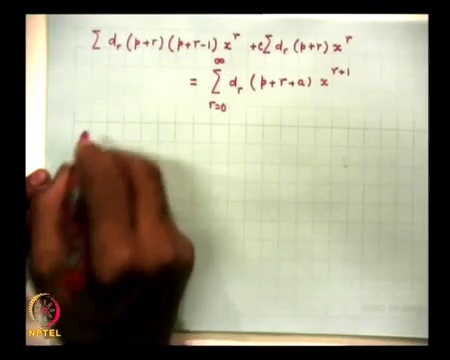 Σ d_r (p+r) (p+r-1) x^r + c Σ d_r (p+r) x^r
= Σ_{r=0}^{∞} d_r (p+r+a) x^{r+1}
NPTEL